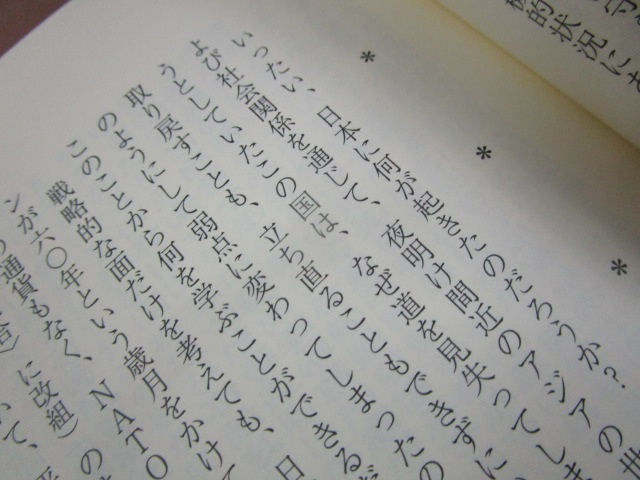 的状況に
* * *
いったい、日本に何が起きたのだろうか?
よび社会関係を通じて、夜明け間近のアジアの世
うとしていたこの国は、なぜ道を見失ってしま
取り戻すことも、立ち直ることもできずに
のようにして弱点に変わってしまったの
このことから何を学ぶことができるだ
戦略的な面だけを考えても、日
ンが六〇年という歳月をかけて
通貨もなく、NATOの
に改組)
いて、